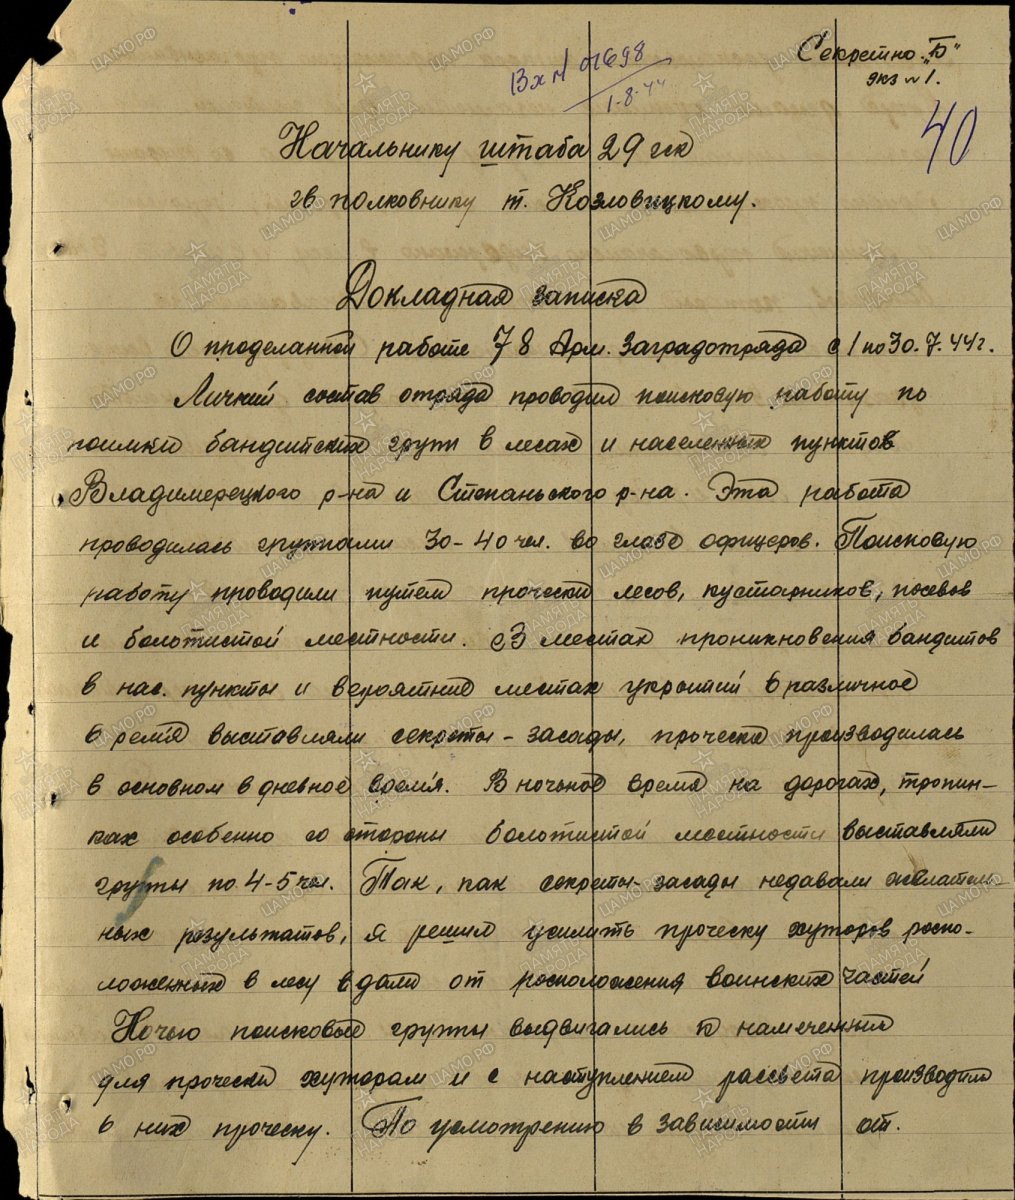 Секретно „Б"
экз № 1.
Вх № 01698
1-8-44
40
Начальнику штаба 29 гск
гв полковнику т. Козловицкому.
Докладная записка
О проделанной работе 78 Арм. Заградотряда с 1 по 30.7.44г.
Личный состав отряда проводил поисковую работу по
поимки бандитских групп в лесах и населенных пунктов
Владимерецкого р-на и Степаньского р-на. Эта работа
проводилась группами 30-40 чел. во главе офицеров. Поисковую
работу проводили путем прочески лесов, кустарников, посевов
и болотистой местности. В местах проникновения бандитов
в нас. пункты и вероятные местах укрытий в различное
время выставляли секреты - засады, проческа производилась
в основном в дневное время. В ночьное время на дорогах, тропин-
ках особенно со стороны болотистой местности выставляли
группы по 4-5 чел. Так, как секреты-засады недавали желатель-
ных результатов, я решил усилить проческу хуторов роспо-
ложенных в лесу вдали от росположения воинских частей
Ночью поисковые группы выдвигались к намеченным
для прочески хуторам и с наступлением рассвета производили
в них проческу. По усмотрению в зависимости от.
ПАМЯТЬ НАРОДА
ЦАМО.РФ